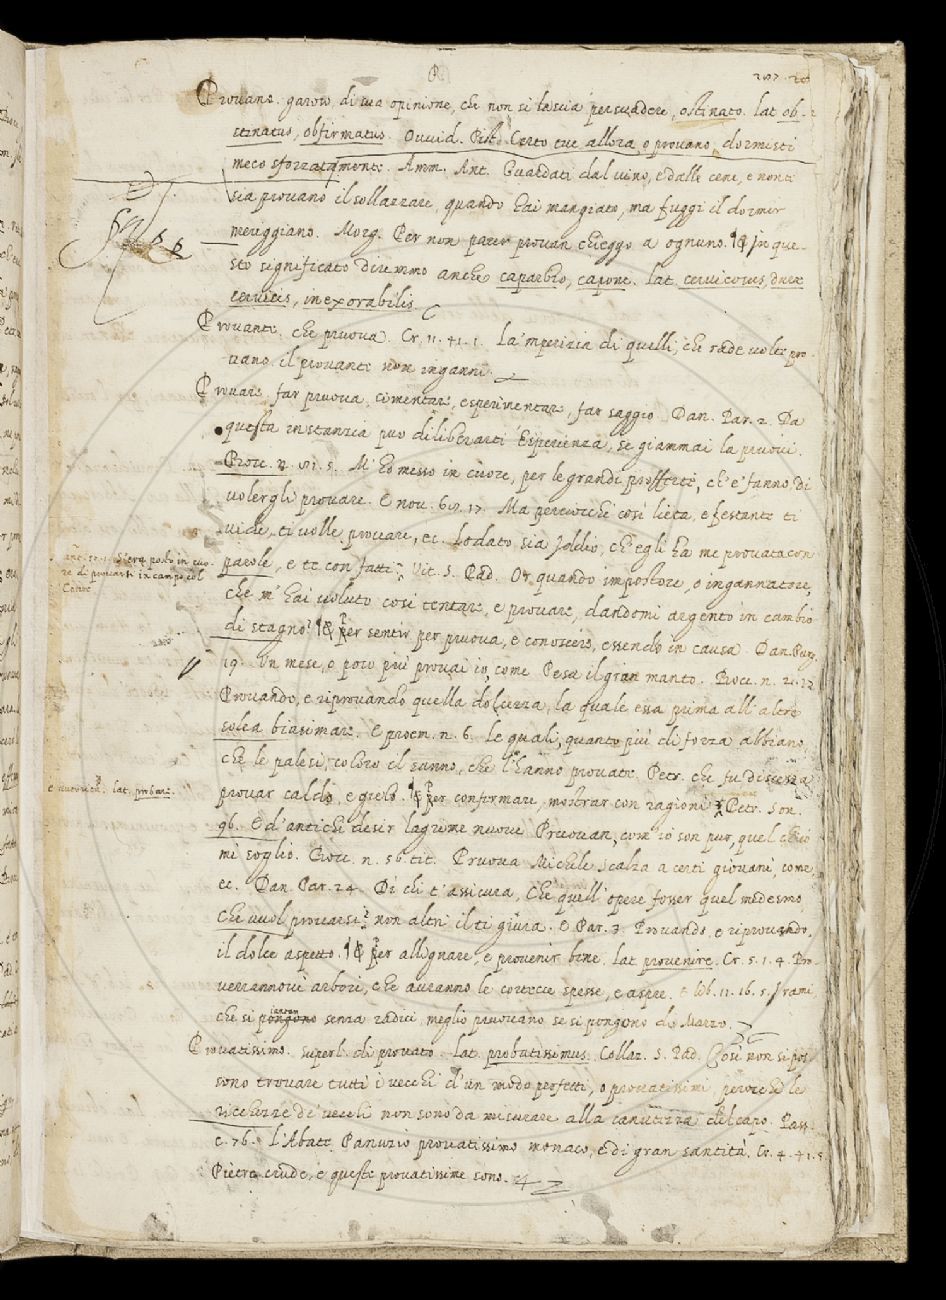 R
Provano. garoso, di sua opinione, che non si lascia persuadere, ostinato. lat. ob-
stinatus, obfirmatus. Ovvid. Pist. Certo tue allora, o provano, dormisti
meco sforzatamente. Amm. Ant. Guardati dal vino, e dalle cene, e non ti
sia provano il sollazzare, quando hai mangiato, ma fuggi il dormir
mereggiano. Morg. Per non parer provan chieggo a ognuno. In que-
sto significato diremmo anche caparbio, capone. lat.
cervicis, inexorabilis.
Provante, che pruova. Cr. 11. 41. 1. La 'mperizia di quelli, che rade volte pro-
vano il provante non inganni.
Provare, far pruova, cimentare, esperimentare, far saggio. Dan. Par. 2. Da
questa instanzia può diliberarti Esperienza, se giammai la pruovi.
Bocc. n. 5. M' ho messo in cuore, per le grandi profferte, ch' e' fanno, di
volergli provare. E nov. 17. Ma perciocchè così lieta, e festante ti
vide, ti volle provare, ec. Lodato sia Iddio, ch' egli ha me provata con
anc. s'era posto in cuo-
re di provarsi in campo col
Conte
parole, e te con fatti. Vit. S. Pad. Or quando impostore, e ingannatore,
che m' hai voluto così tentare, e provare, dandomi argento in cambio
di stagno? per sentir per pruova, e conoscere, essendo in causa. Dan. Purg.
19. Un mese, e poco più provai io, come Pesa il gran manto. Bocc. n. 21. 12
Provando, e riprovando quella dolcezza, la quale essa prima all' altre
solea biasimare. E proem. n. 6. Le quali, quanto più di forza abbiano,
che le palesi, coloro il sanno, che l' hanno provate. Petr. che fu discesa
provar caldo, e gielo. per confirmare, mostrar con ragioni. Petr. Son.
lat. probare.
96. E d' antichi desir lagrime nuove Pruovan, com' io son pur, quel ch' io
mi soglio. Bocc. n. 56. tit. Pruova Michele Scalza a certi giovani, come,
ec. Dan. Par. 24. Di chi t' assicura, che quell' opere fosser quel medesmo,
che vuol provarsi? non altri il ti giura. E Par. 3. Provando, e riprovando,
il dolce aspetto. per allignare, e provenir bene. lat. provenire. Cr. 5. 1. 4. Pro-
veranno vi arbori, che avranno le cortecce spesse, e aspre. E lib. 11. 16. 5. I rami,
che si pongono senza radici, meglio pruovano se si pongono di Marzo.
Provatissimo. superl. di provato. lat. probatissimus. Collaz. S. Pad. Così non si pos-
sono trovare tutti i vecchi d' un modo perfetti, o provatissimi, perocchè le
ricchezze de' vecchi non sono da misurare alla canutezza del capo. Pass.
c. 76. L' Abate Panuzio provatissimo monaco, e di gran santità. Cr. 4. 41. 5
Pietre crude, e queste provatissime sono.